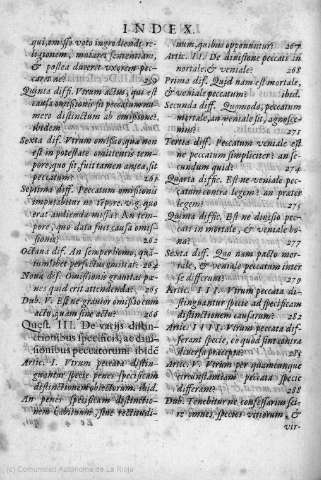 INDEX.
qui, emisso voto ingrediendi re-
ligionem, mutaret sententiam,
& postea duceret vxorem pec-
caret ne? 259
Quinta diff. Vtrum actus, qui est
causa omissionis sit peccatum nu-
mero distinctum ab omissione?
ibidem
Sexta diff. Vtrum omissio, quæ non
est in potestate omittentis tempo-
re, quo fit, fuit tamen antea, sit
peccatum?
Septima diff. Peccatum omissionis
imputabitur ne tẽpore. v.g. quo
erat audienda missa? An tem-
pore, quo data fuit causa omis-
sionis? 262
Octaua dif. An semper homo, quã-
tumlibet perfectus omittat? 264
Nona dif. Omissionis grauitas pe-
nes quid erit attendenda? 265
Dub. V. Est ne grauior omissio cum
actu, quam sine actu? 266
Quæst. III. De varijs distin-
ctionibus specificis, ac diui-
sionibus peccatorum. ibidẽ
Artic. I. Vtrum peccata distin-
guantur specie penes specificam
distinctionem obiectorum. ibid.
An penes specificam distinctio-
nem habituum, siue rectitudi-
num, quibus opponuntur? 267
Artic. II. De diuisione peccati in
mortale, & veniale. 268
Prima dif. Quid nam est mortale,
& veniale peccatum? ibid.
Secunda diff. Quomodo, peccatum
mortale, an veniale sit, agnosce-
mus? 271
Tertia diff. Peccatum veniale est
ne peccatum simpliciter? an se-
cundum quid? 274
Quarta diffic. Est ne veniale pec-
catum contra legem? an præter
legem? 275
Quinta diffic. Est ne diuisio pec-
cati in mortale, & veniale bo-
na? 277
Sexta diff. Quo nam pacto mor-
tale, & veniale peccatum inter
se differant? 279
Artic. III. Vtrum peccata di-
stinguantur specie ad specificam
distinctionem causarum? 282
Artic. IIII. Vtrum peccata dif-
ferant specie, eo quod sint contra
diuersa præcepta? 285
Artic. V. Vtrum per quamcunque
circunstantiam peccata specie
differant? 288
Dub. Tenebitur ne confessarius sci-
re omnes, species vitiorum, &
vir-
(c) Comunidad Autónoma de La Rioja